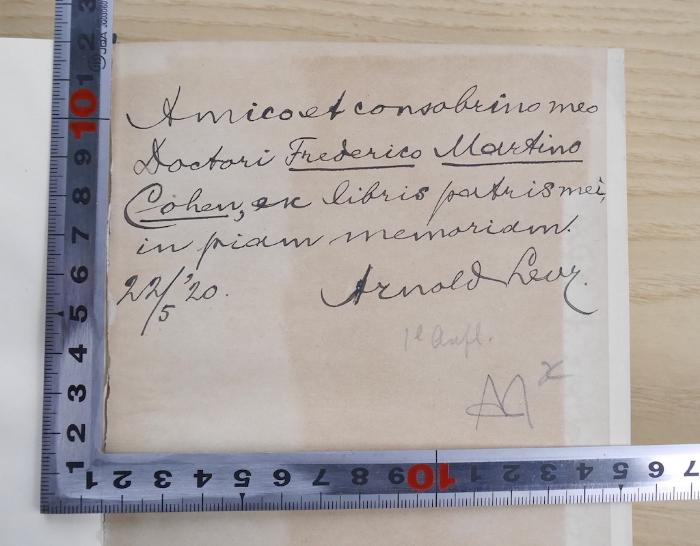 Amico et consobrino meo
Doctori Frederico Martino
Cohen, ex libris patris mei,
in piam memoriam.
22/5 '20.
Arnold Levy.
1e Aufl.
JBA
3 2 1 10 9 8 7 6 5 4 3 2 1
1 2 3 4 5 6 7 8 9 10 1 2 3 4 5 6 7